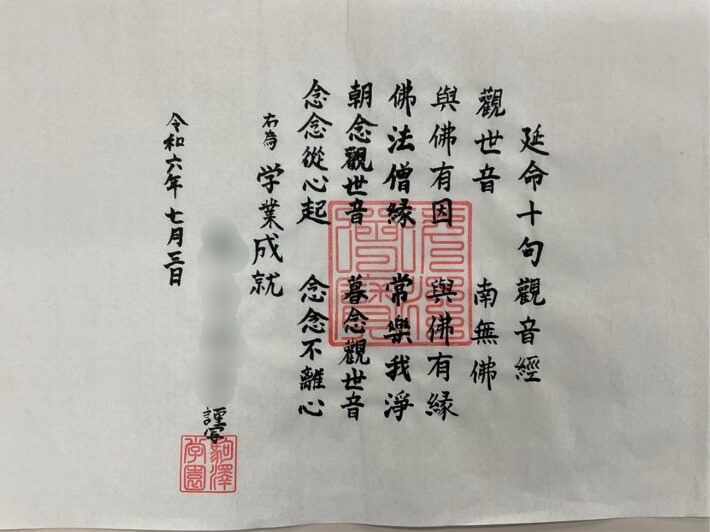 延命十句觀音經
觀世音　南無佛
與佛有因　與佛有縁
佛法僧縁　常樂我淨
朝念觀世音　暮念觀世音
念念從心起　念念不離心
右為 学業成就
謹写
駒澤
学園
令和六年七月三日